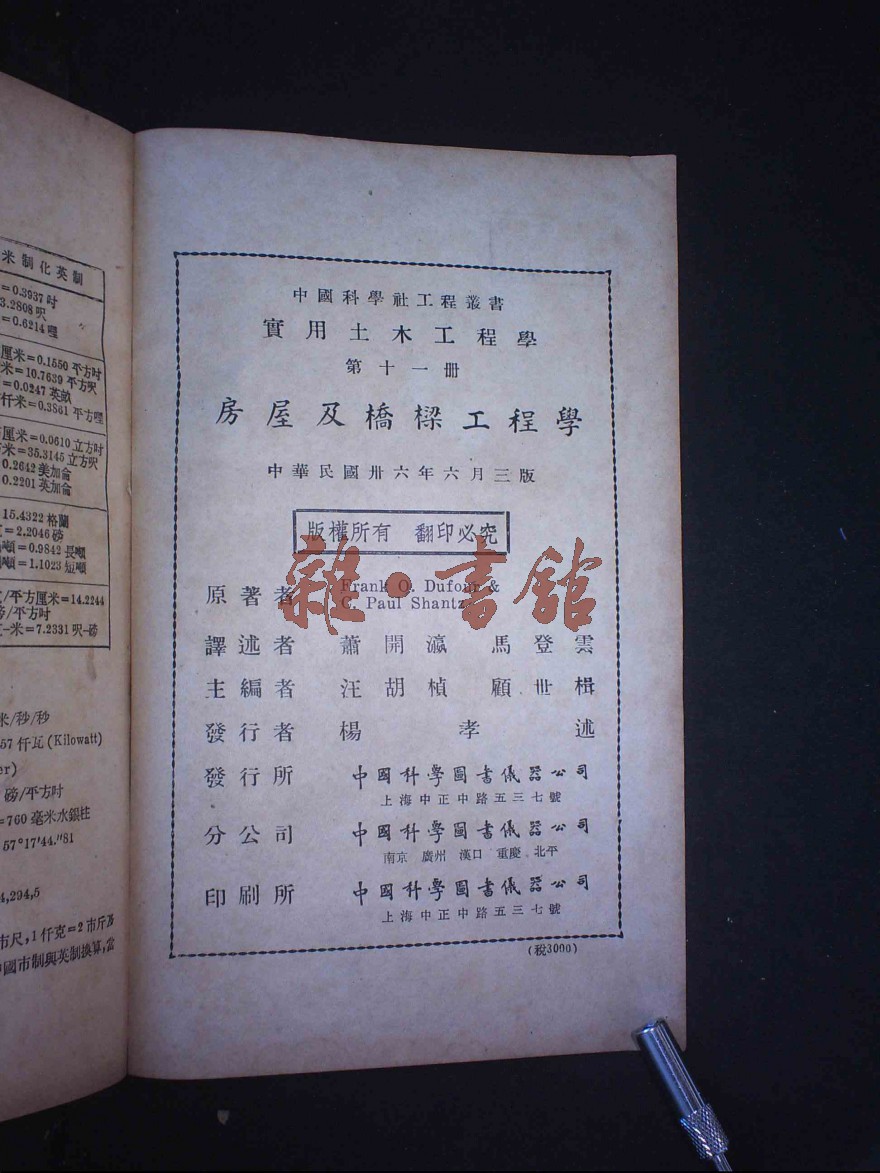 米制化英制
=0.3937吋
3.2808呎
=0.6214哩
厘米=0.1550 平方吋
米=10.7639 平方呎
=0.0247 英畝
仟米=0.3861 平方哩
厘米=0.0610 立方吋
米=35.3145 立方呎
0.2642 美加侖
0.2201 英加侖
15.4322 格蘭
=2.2046 磅
噸=0.9842 長噸
噸=1.1023 短噸
/平方厘米=14.2244
磅/平方吋
-米=7.2331 呎-磅
米/秒/秒
57 仟瓦 (Kilowatt)
er)
磅/平方吋
=760 毫米水銀柱
57°17'44."81
4,294,5
市尺,1仟克=2市斤及
國市制與英制換算,當
中國科學社工程叢書
實用土木工程學
第十一冊
房屋及橋樑工程學
中華民國卅六年六月三版
版權所有 翻印必究
原著者 Frank O. Dufour &
C. Paul Shantz
譯述者 蕭開瀛 馬登雲
主編者 汪胡楨 顧世楫
發行者 楊孝述
發行所 中國科學圖書儀器公司
上海中正中路五三七號
分公司 中國科學圖書儀器公司
南京 廣州 漢口 重慶 北平
印刷所 中國科學圖書儀器公司
上海中正中路五三七號
(税3000)
雜·書館